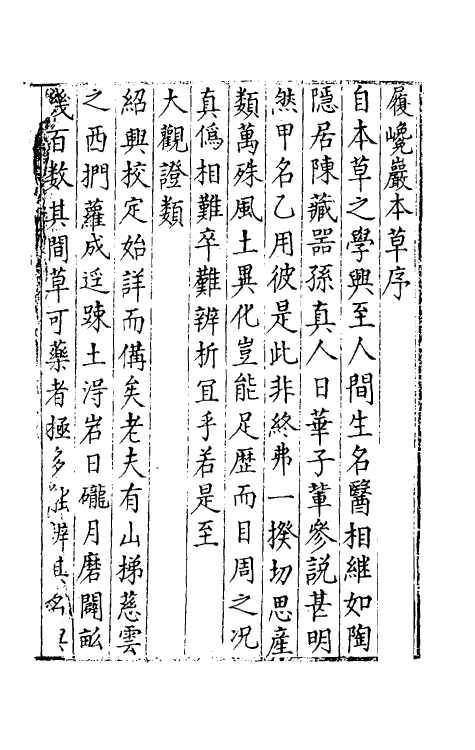 履巉巖本草序
自本草之學興至人間生名醫相継如陶
隱居陳藏噐孫真人日華子軰參説甚明
然甲名乙用彼是此非終弗一揆切思產
類萬殊風土異化豈能足歴而目周之况
真僞相難卒難辨析冝乎若是至
大觀證類
紹興挍定始詳而備矣老夫有山梯慈雲
之西捫蘿成逕踈土淂岩日礲月磨闢畝
幾百数其間草可藥者極多能辨其名